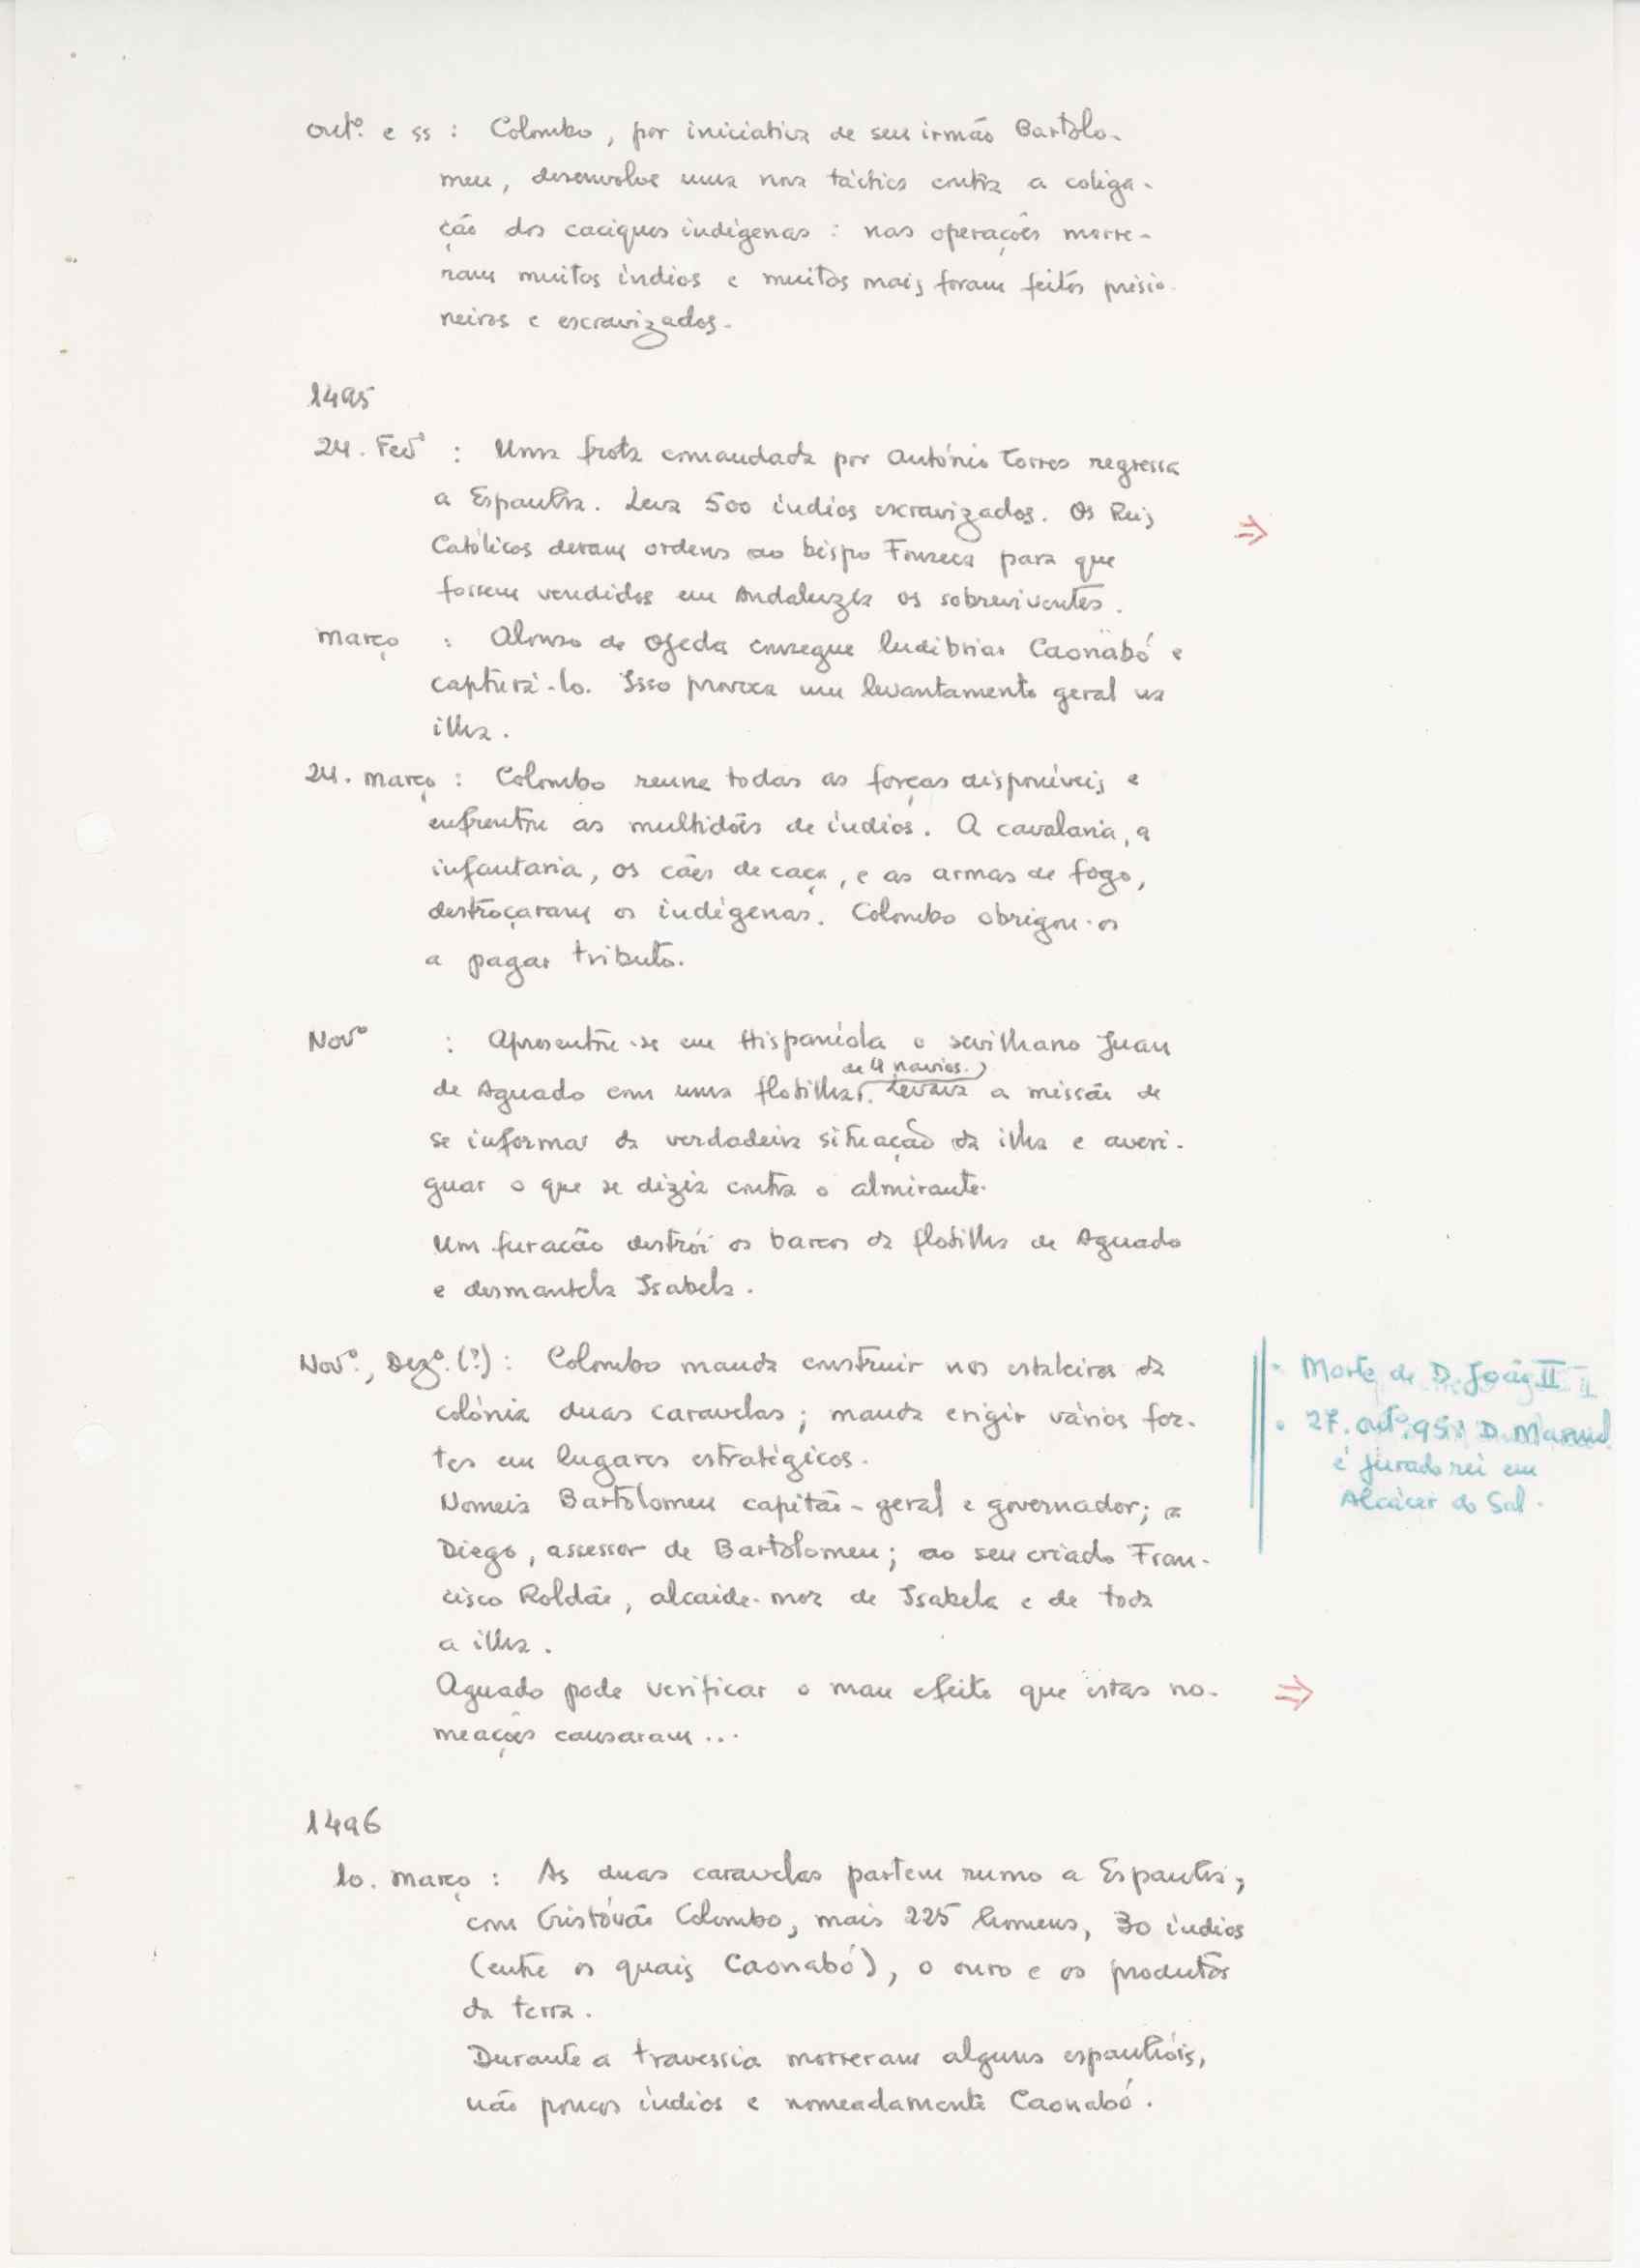 Outº. e ss : Colombo, por iniciativa de seu irmão Bartolo-
meu, desenvolve uma nova táctica contra a coliga-
ção dos caciques indígenas : nas operações morre-
ram muitos índios e muitos mais foram feitos prisio-
neiros e escravizados.
1495
24. Fevº : Uma frota comandada por António Torres regressa
a Espanha. Leva 500 índios escravizados. Os Reis
Católicos deram ordens ao bispo Fonseca para que
fossem vendidos em Andaluzia os sobreviventes.
⇒
Março : Alonso de Ojeda consegue ludibriar Caonabó e
capturá-lo. Isso provoca um levantamento geral na
ilha.
24. Março : Colombo reune todas as forças disponíveis e
enfrentou as multidões de índios. A cavalaria, a
infantaria, os cães de caça, e as armas de fogo,
destroçaram os indígenas. Colombo obrigou-os
a pagar tributo.
Novº : Apresentou-se em Hispaníola o sevilhano Juan
de 4 navios.
de Aguado com uma flotilha. Levava a missão de
se informar da verdadeira situação da ilha e averi-
guar o que se dizia contra o almirante.
Um furacão destrói os barcos da flotilha de Aguado
e desmantela Isabela.
Novº., Dezº. (?) : Colombo manda construir nos estaleiros da
colónia duas caravelas; manda erigir vários for-
tes em lugares estratégicos.
Nomeia Bartolomeu capitão-geral e governador; a
Diego, assessor de Bartolomeu; ao seu criado Fran-
cisco Roldão, alcaide-mor de Isabela e de toda
a ilha.
Aguado pode verificar o mau efeito que estas no-
meações causaram...
⇒
• Morte de D. João II
• 27. outº. 95: D. Manuel
é jurado rei em
Alcácer do Sal.
1496
10. Março : As duas caravelas partem rumo a Espanha,
com Cristóvão Colombo, mais 225 homens, 30 índios
(entre os quais Caonabó), o ouro e os produtos
da terra.
Durante a travessia morreram alguns espanhóis,
não poucos índios e nomeadamente Caonabó.